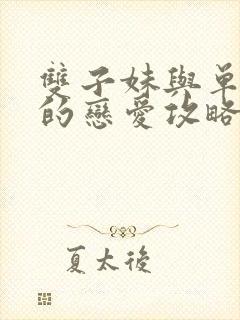 雙子妹與單
的戀愛攻略
夏太後